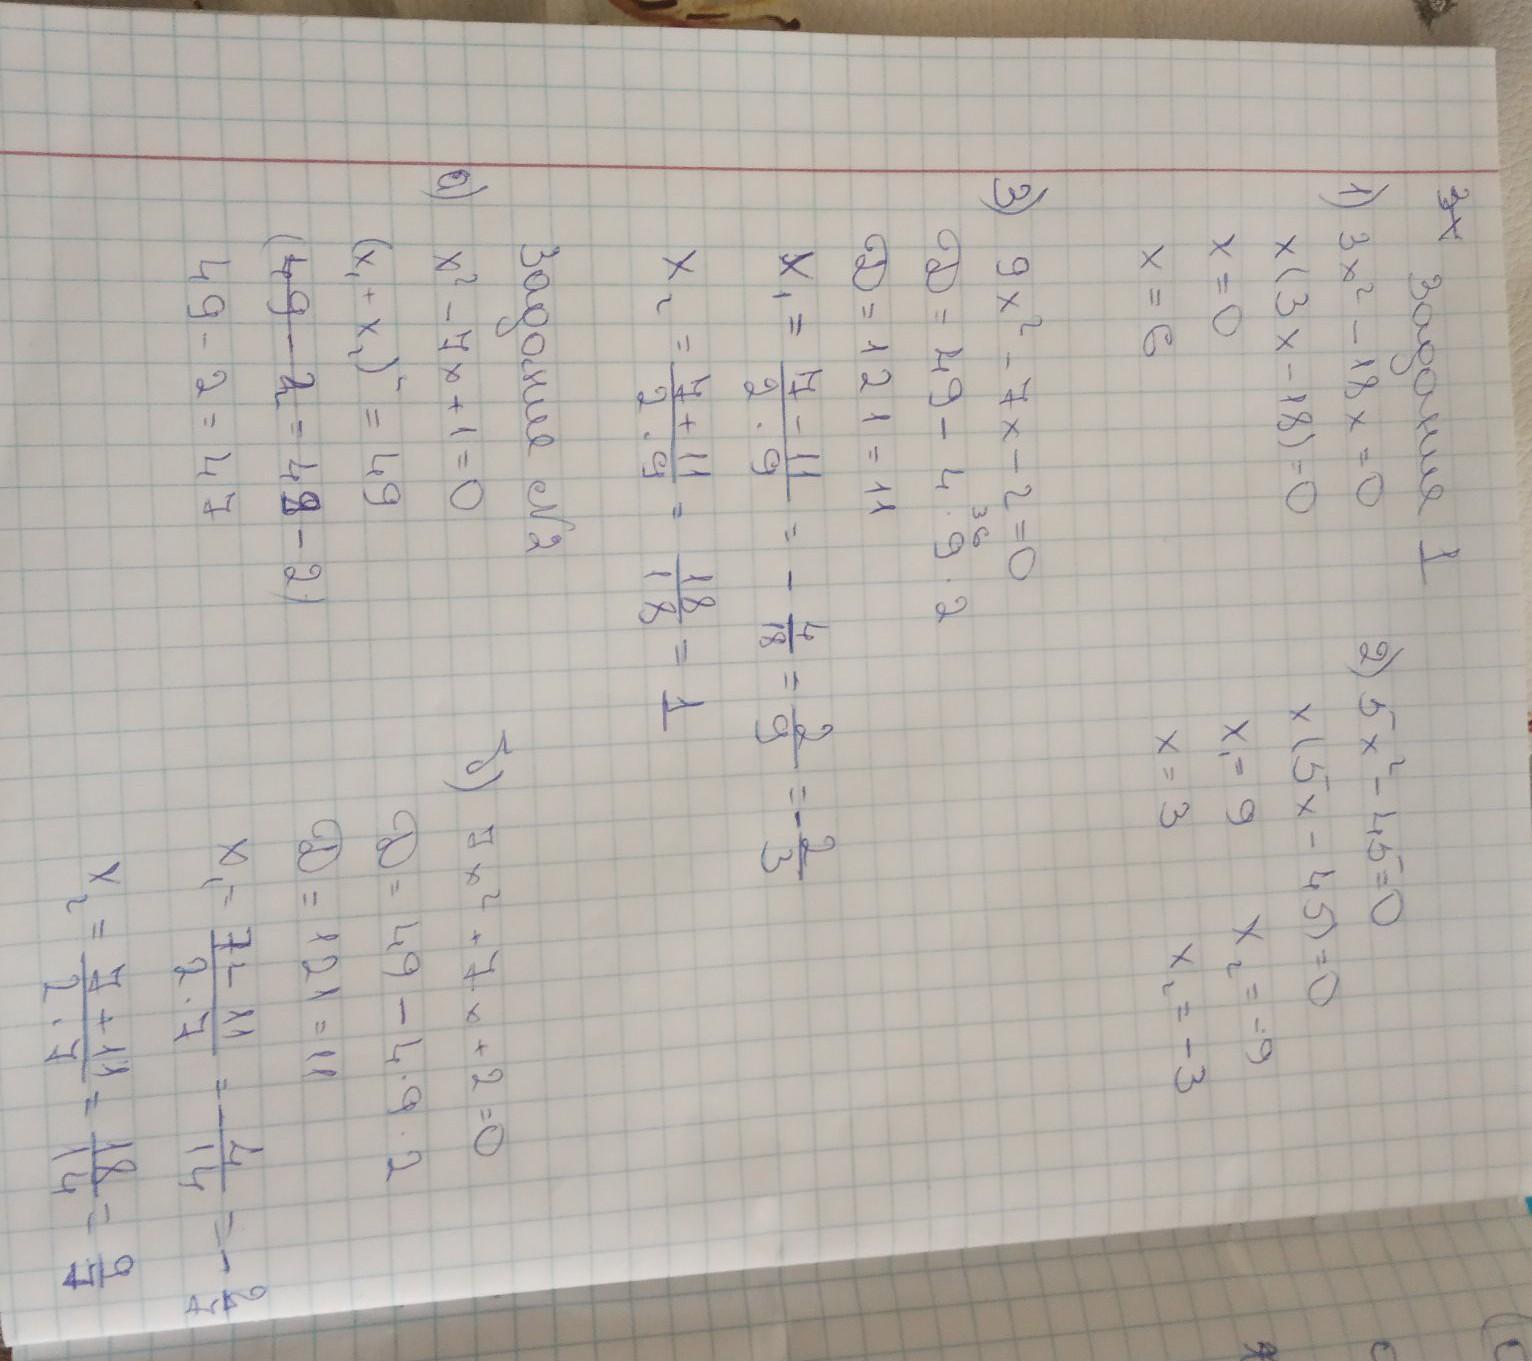 Задание 1
1) 3x² - 18x = 0
x(3x - 18) = 0
x = 0
x = 6
2) 5x² - 45 = 0
x(5x - 45) = 0
x₁ = 9 x₂ = -9
x = 3 x₂ = -3
3) 9x² - 7x - 2 = 0
36
D = 49 - 4 · 9 · 2
D = 121 = 11
x₁ = 7 - 11 / 2 · 9 = - 4/18 = 2/9 = - 2/3
x₂ = 7 + 11 / 2 · 9 = 18/18 = 1
Задание №2
а) x² - 7x + 1 = 0
(x₁ + x₂)² = 49
(49 - 2 = 49 - 2)
49 - 2 = 47
б) 7x² + 7x + 2 = 0
D = 49 - 4 · 9 · 2
D = 121 = 11
x₁ = 7 - 11 / 2 · 7 = - 4/14 = - 2/7
x₂ = 7 + 11 / 2 · 7 = 18/14 = 9/7